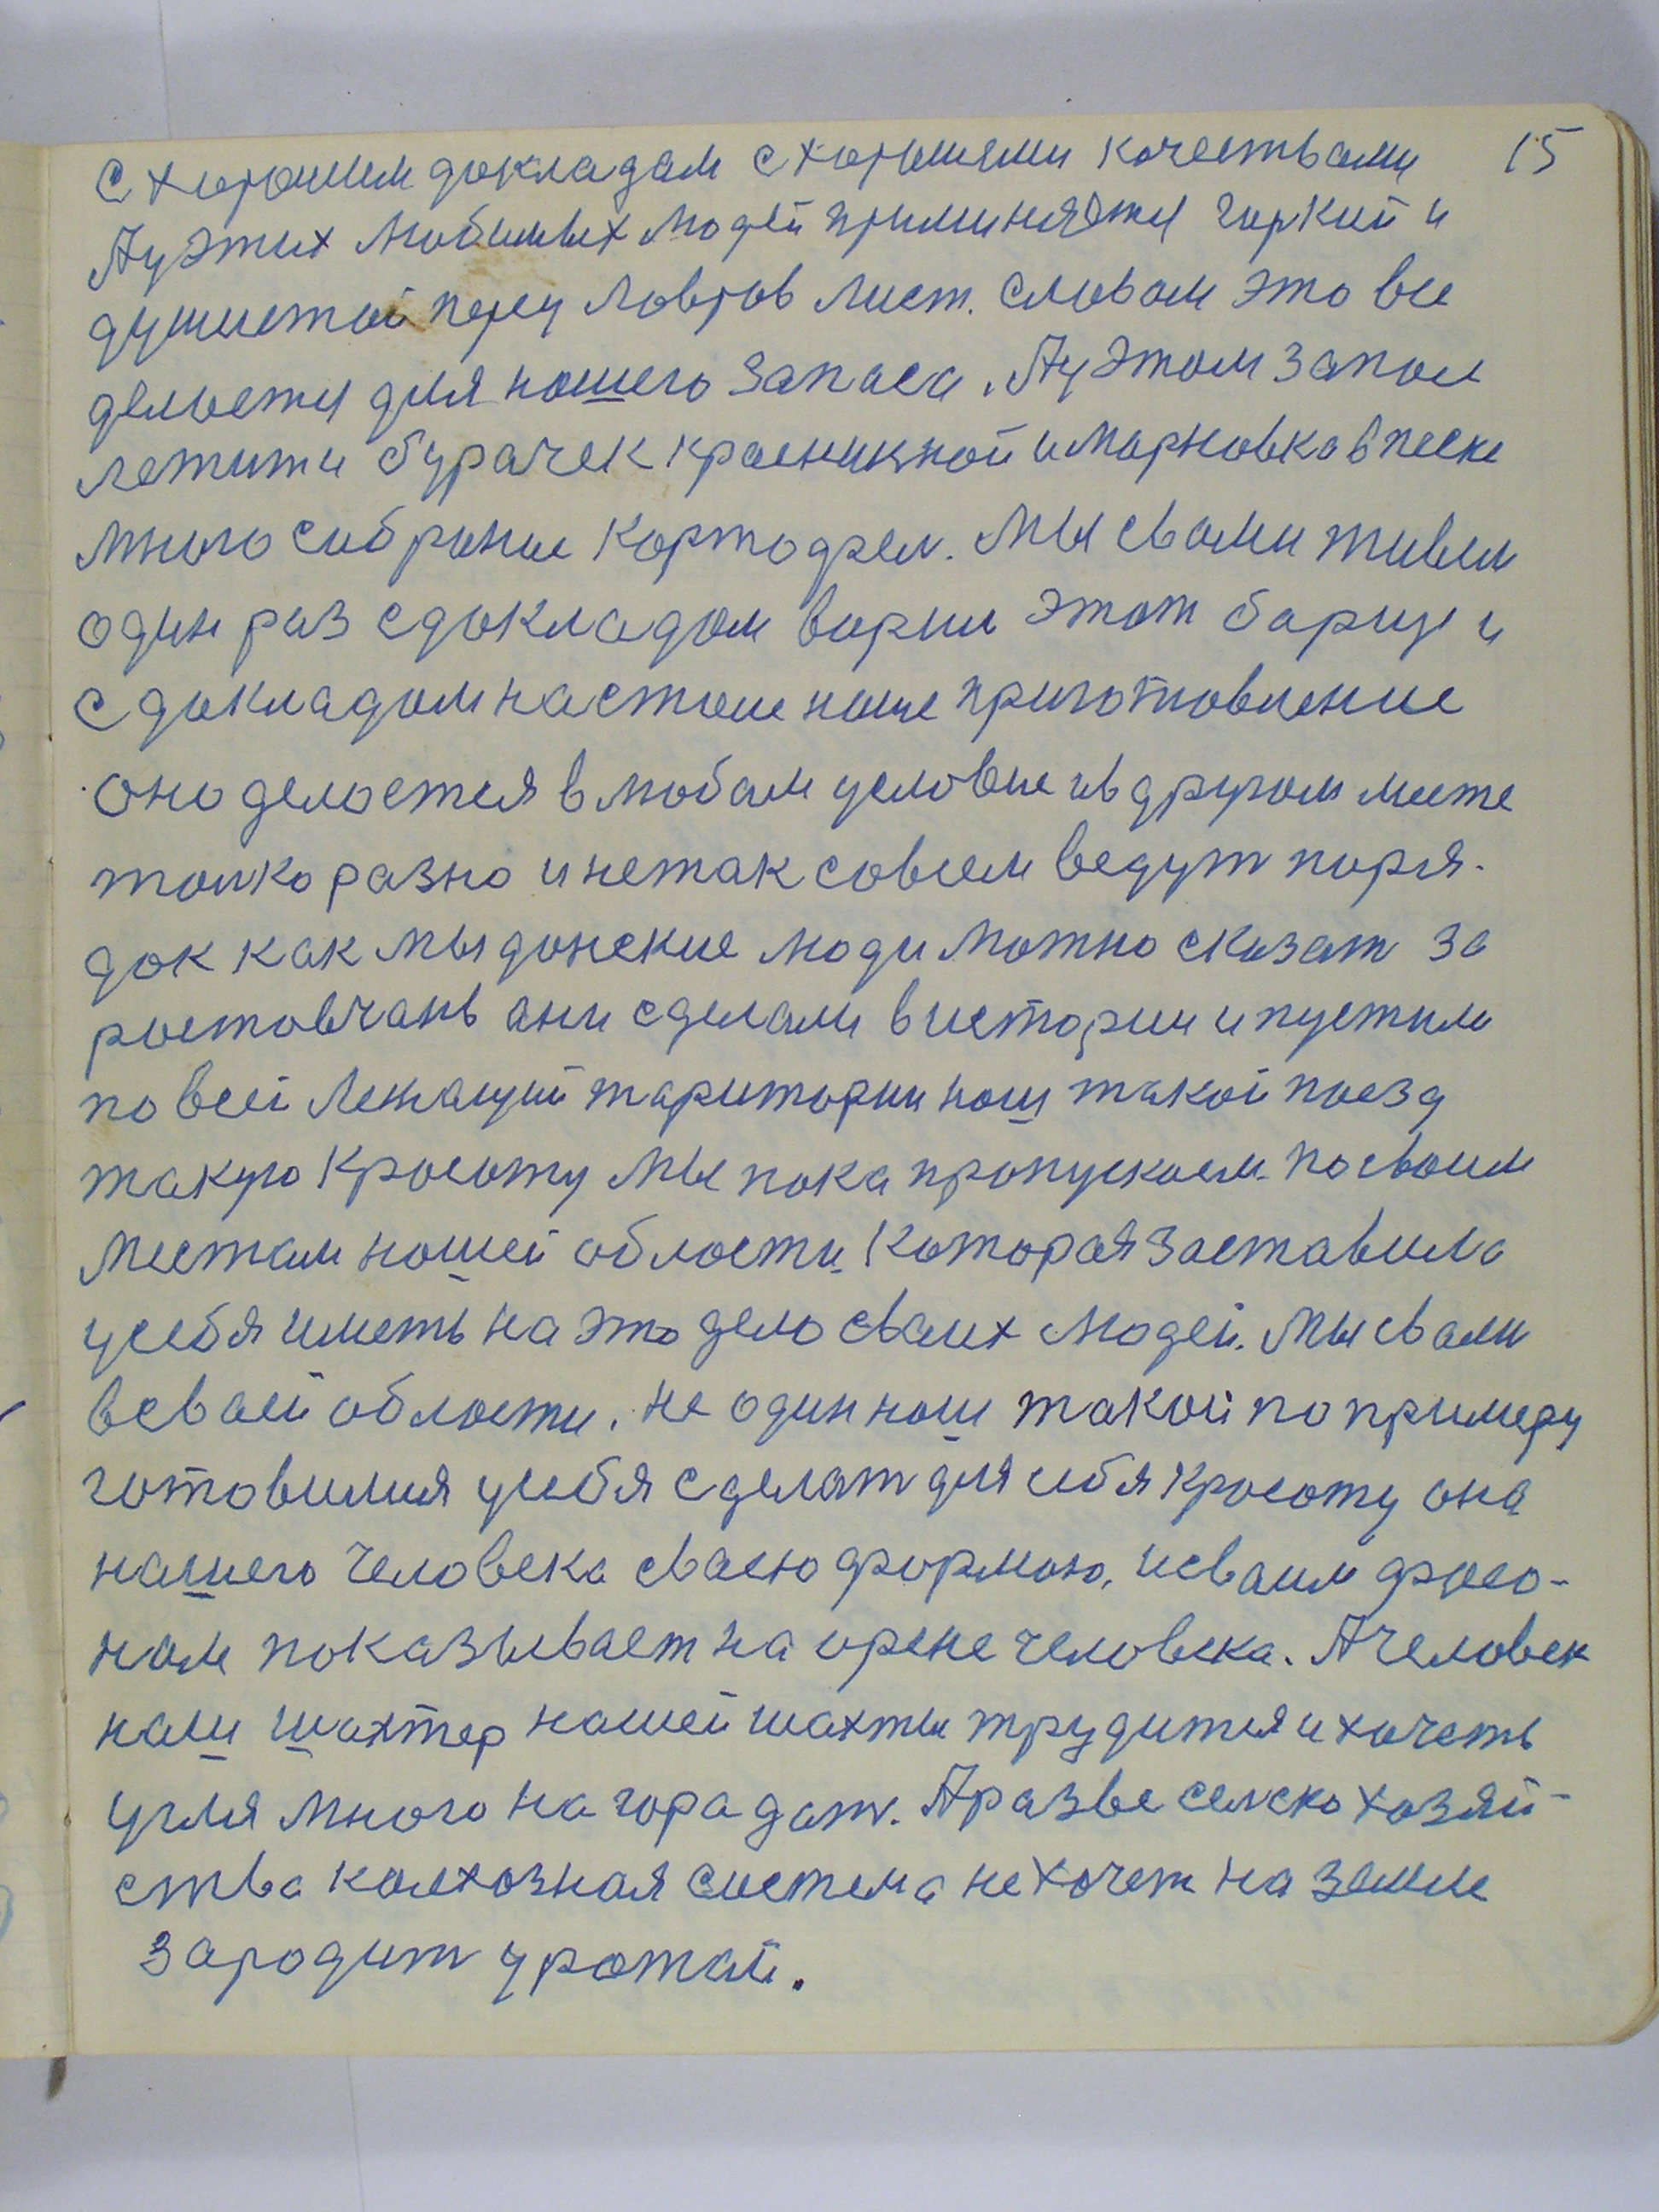 с хорошим докладам с хорошими качествами 15
А у этих любимых людей приминяется горкий и
душистай перец лавров лист. Словам это все
делается для нашего запаса. А у этом запасе
лежити бурачек красникной и марковка в песке
много собрание картофел. Мы свами живем
один раз сдокладом варим этот барщ и
с докладом на столе наше приготовление
оно делается в любом условие и в другом месте
толко разно и нетак совсем ведут поря-
док как мы донские люди можно сказат за
ростовчань они сделали в истории и пустили
по всей лежащий таритории наш такой поезд
такую красоту мы пока пропускаем по своим
местам нашей области которая заставила
у себя иметь на это дело сваих людей. Мы свами
в сваей области. не один наш такой по примеру
готовимся у себя сделат для себя красоту она
нашего человека сваею формою, и сваим фасо-
нам показывает на арене человека. А человек
наш шахтер нашей шахты трудится и хочеть
угля много на гора дат. А разве селско хозяй-
ства колхозная система не хочет на земле
зародит урожай.